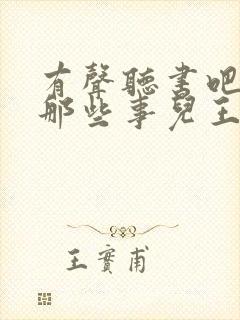 有聲聽書吧
那些事兒王
王實甫